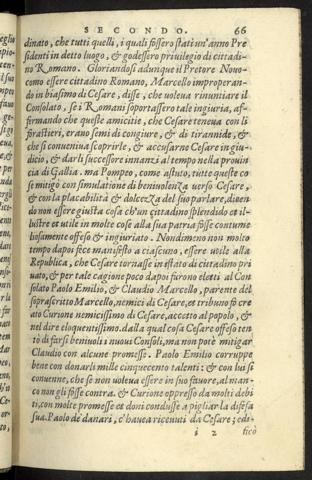 SECONDO. 66
dinato, che tutti quelli, i quali fossero stati un'anno Pre
sidenti in detto luogo, & godessero priuilegio di cittadi-
no Romano. Gloriandosi adunque il Pretore Nouo-
como essere cittadino Romano, Marcello improperan-
do in biasimo di Cesare, disse, che uoleua rinuntiare il
Consolato, se i Romani soportassero tale ingiuria, af-
firmando che queste amicitie, che Cesare teneua con li
forastieri, erano semi di congiure, & di tirannide, &
che si conueniua scoprirle, & accusarne Cesare in giu-
dicio, & darli successore innanzi al tempo nella prouin
cia di Gallia. ma Pompeo, come astuto, tutte queste co
se mitigò con simulatione di beniuolenza uerso Cesare,
& con la placabilità & dolcezza del suo parlare, dicen
do non essere giusta cosa ch'un cittadino splendido et il-
lustre et utile in molte cose alla sua patria fosse contume
liosamente offeso & ingiuriato. Nondimeno non molto
tempo dapoi fece manifesto a ciascuno, essere utile alla
Republica, che Cesare tornasse in stato di cittadino pri
uato, & per tale cagione poco dapoi furono eletti al Con
solato Paolo Emilio, & Claudio Marcello, parente del
soprascritto Marcello, nemici di Cesare, et tribuno fu cre
ato Curione nemicissimo di Cesare, accetto al popolo, &
nel dire eloquentissimo. dalla qual cosa Cesare offeso ten
tò di farsi beniuoli i nuoui Consoli, ma non potè mitigar
Claudio con alcune promesse. Paolo Emilio corruppe
bene con donarli mille cinquecento talenti: & con lui si
conuenne, che se non uoleua essere in suo fauore, al man-
co non gli fosse contra. & Curione oppresso da molti debi
ti, con molte promesse et doni condusse a pigliar la difesa
sua. Paolo de danari, c'haueа riceuuti da Cesare; edi-
i 2 ficò